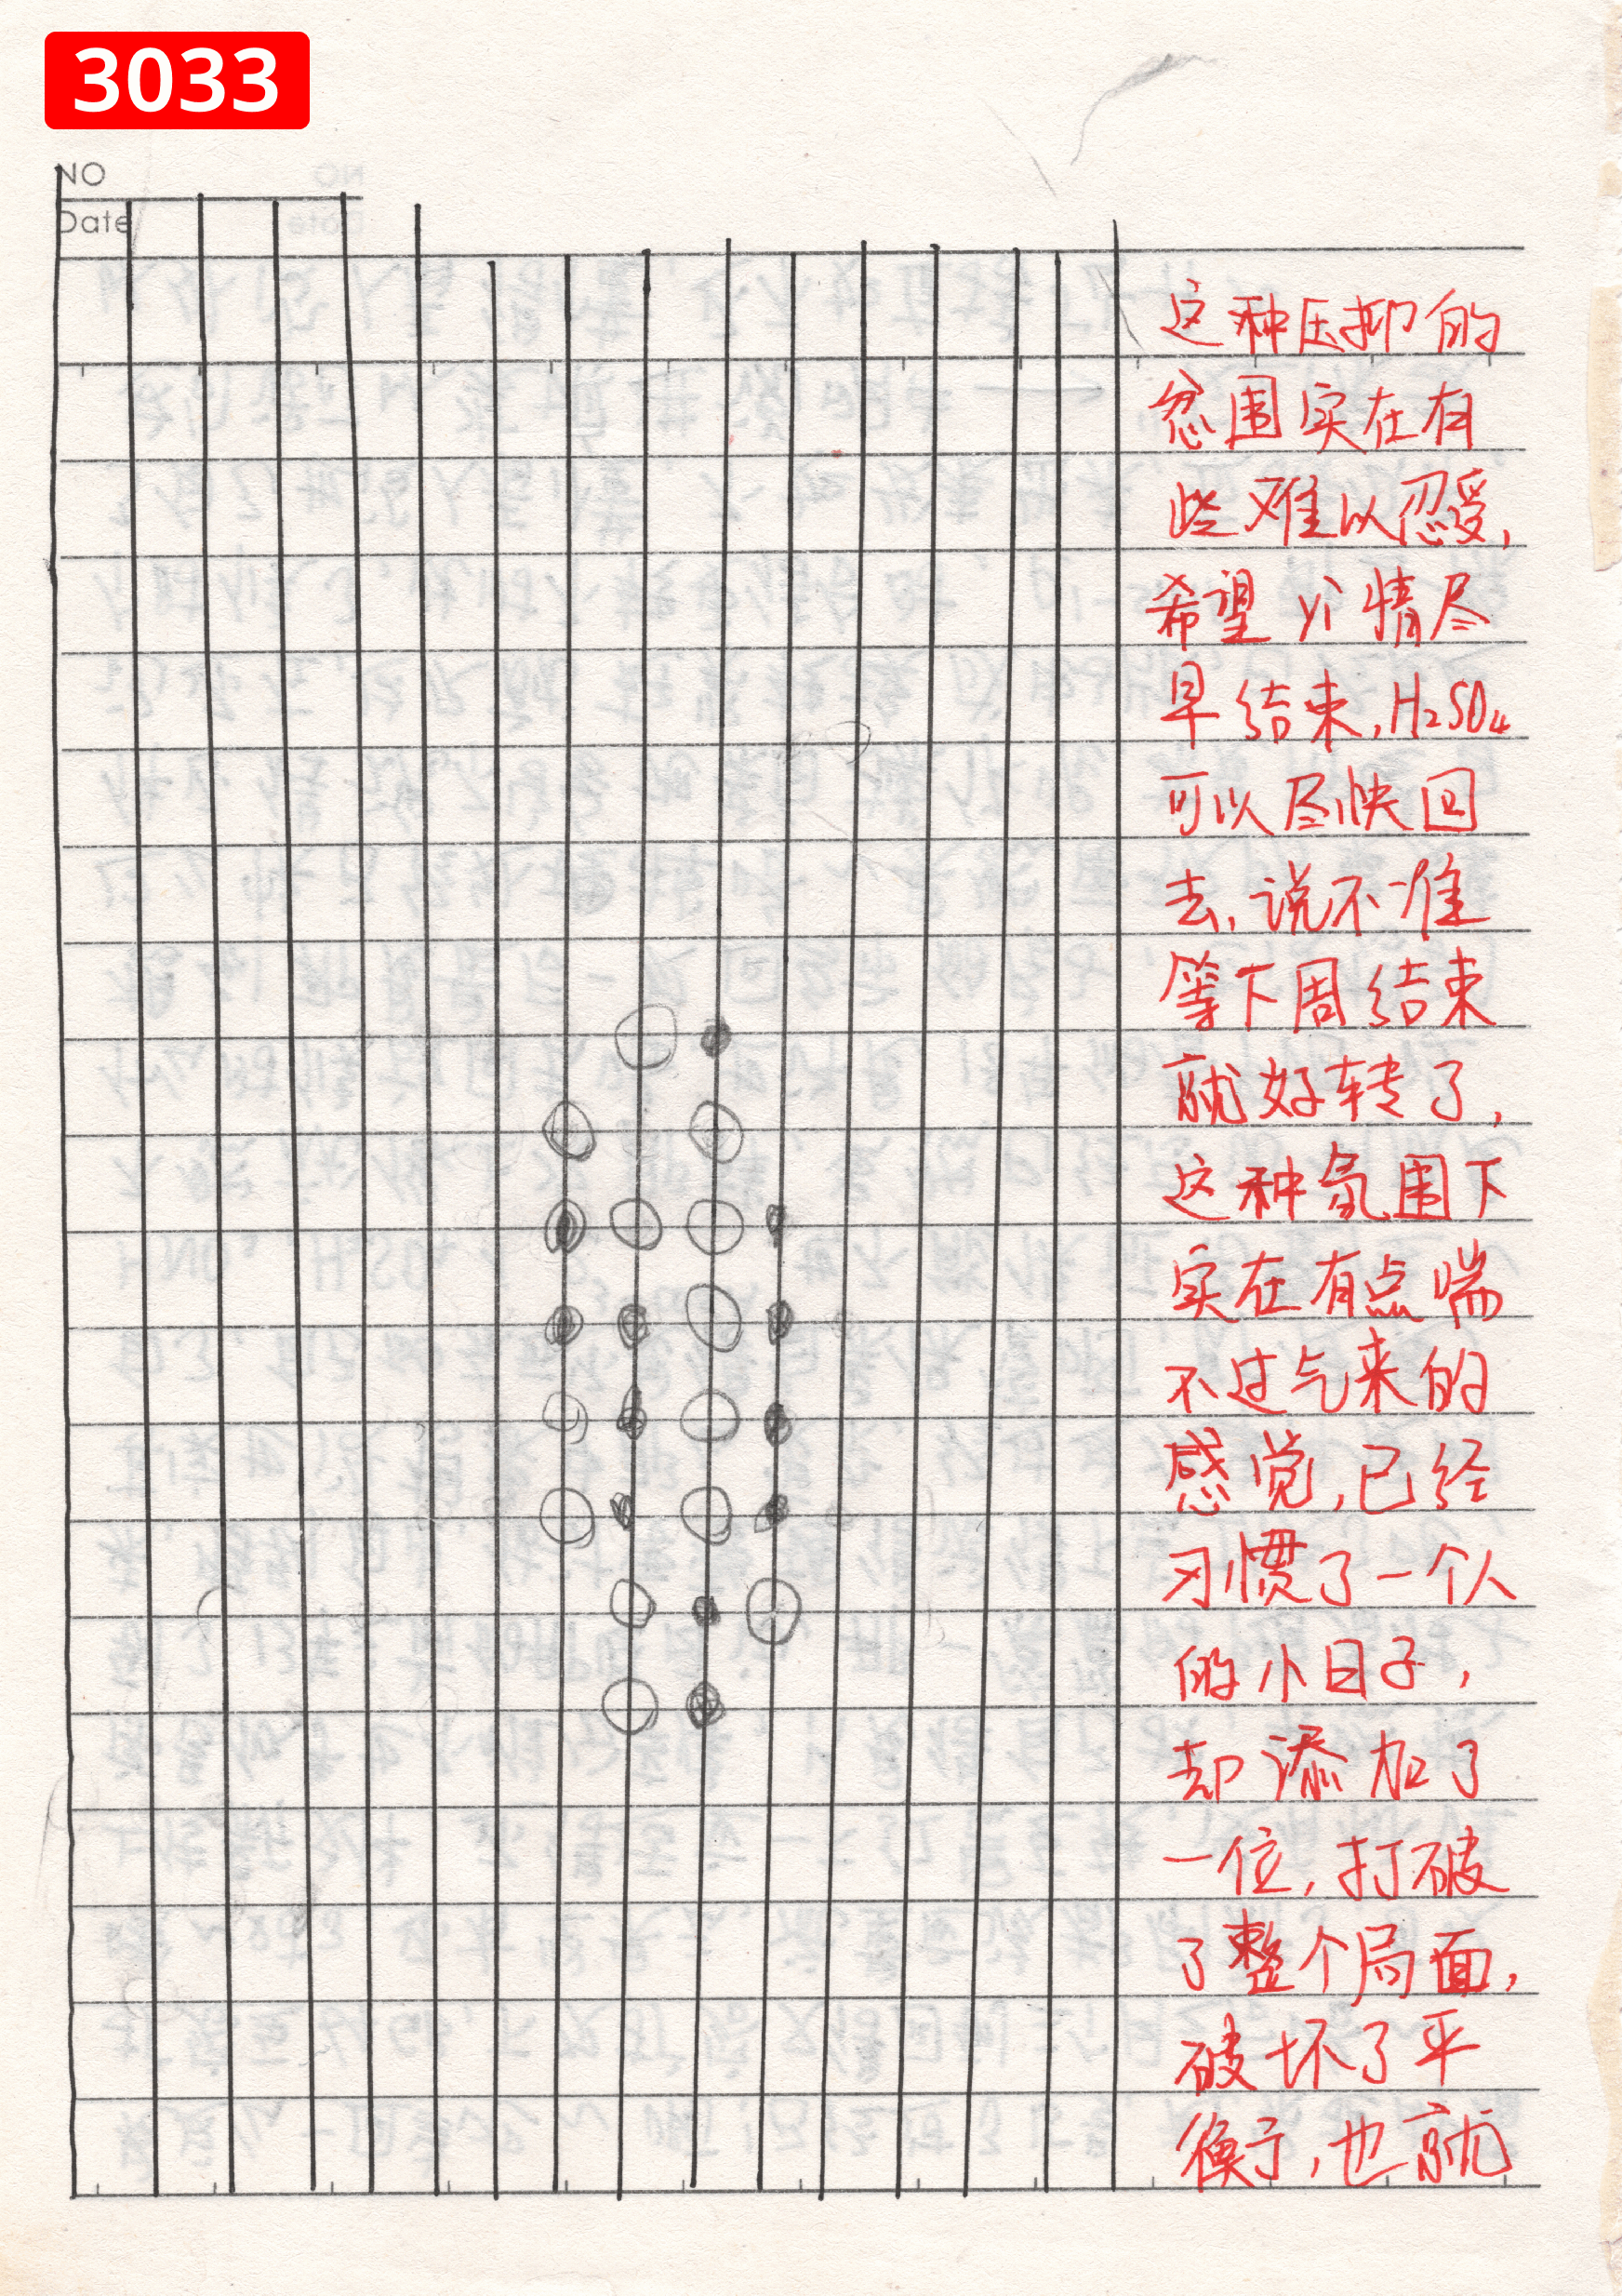 3033
NO
Date
这种压抑的
忿围实在有
些难以忍受,
希望 yi 情尽
早结束,H₂SO₄
可以尽快回
去,说不准
等下周结束
就好转了,
这种氛围下
实在有点喘
不过气来的
感觉,已经
习惯了一个人
的小日子,
却添加了
一位,打破
了整个局面,
破坏了平
衡,也就